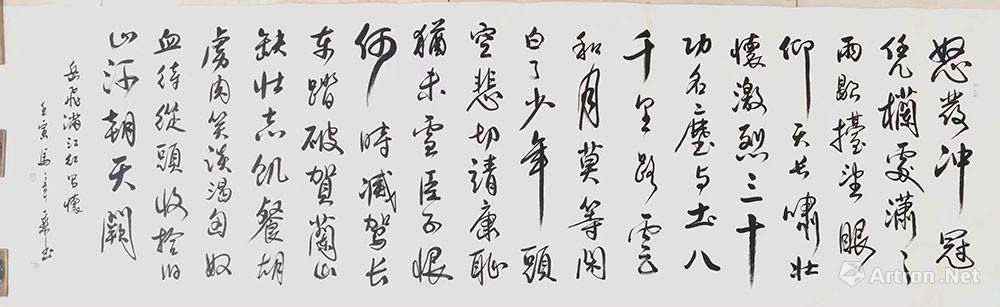 怒发冲冠
凭栏處潇々
雨歇擡望眼
仰天长啸壮
懷激烈三十
功名塵与土八
千里路雲
和月莫等闲
白了少年頭
空悲切靖康耻
猶未雪臣子恨
何時滅驾长
车踏破贺蘭山
缺壮志飢餐胡
虏肉笑谈渴匈奴
血待從頭收拾旧
山河朝天阙
岳飛满江红写懷
壬寅馬
Artron.Net